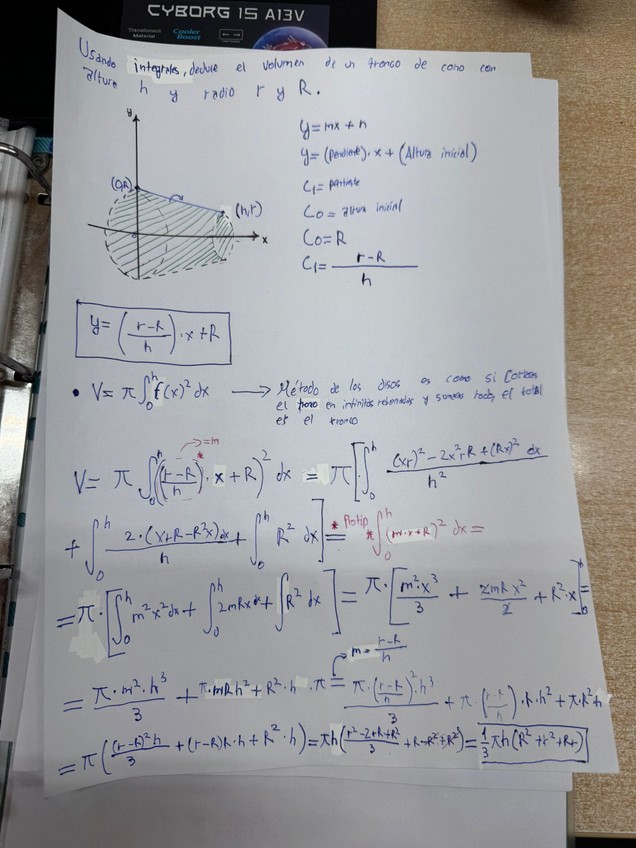 CYBORG 15 A13V
Cooler Boost
Usando integrales, deduce el volumen de un tronco de cono con
altura h y radio r y R.
y
(0,R)
(h,r)
x
y=mx+n
y=(pendiente)·x+(Altura inicial)
C₁=pendiente
C₀=altura inicial
C₀=R
C₁=(r-R)/h
y=((r-R)/h)·x+R
• V=π∫₀ʰ f(x)² dx → Método de los discos es como si cortases
el trozo en infinitas rebanadas y sumas todas, el total
es el tronco
→=m
V= π∫₀ʰ(((r-R)/h)*·x+R)² dx = π[∫₀ʰ ((xr)²-2x²rR+(Rx)²)/h² dx
+∫₀ʰ (2·(xrR-R²x)dx)/h+∫₀ʰ R² dx]= * Protip ∫₀ʰ(m·x+R)² dx=
=π·[∫₀ʰ m²x²dx+∫₀ʰ 2mRx dx+∫R² dx]=π·[(m²·x³)/3+(2mRx²)/2+R²·x]₀ʰ=
m=(r-R)/h
=(π·m²·h³)/3+π·mRh²+R²·h·π=(π·((r-R)/h)²·h³)/3+π·((r-R)/h)·R·h²+π·R²h
=π(((r-R)²h)/3+(r-R)R·h+R²·h)=πh((r²-2rR+R²)/3+rR-R²+R²)=1/3πh(R²+r²+Rr)